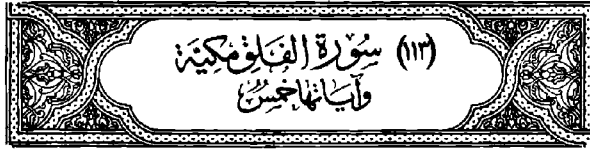 (١١٣) سُورَةُ الفَلَقِ مَكِيَّة
وَآيَاتهَا خَمْسٌ